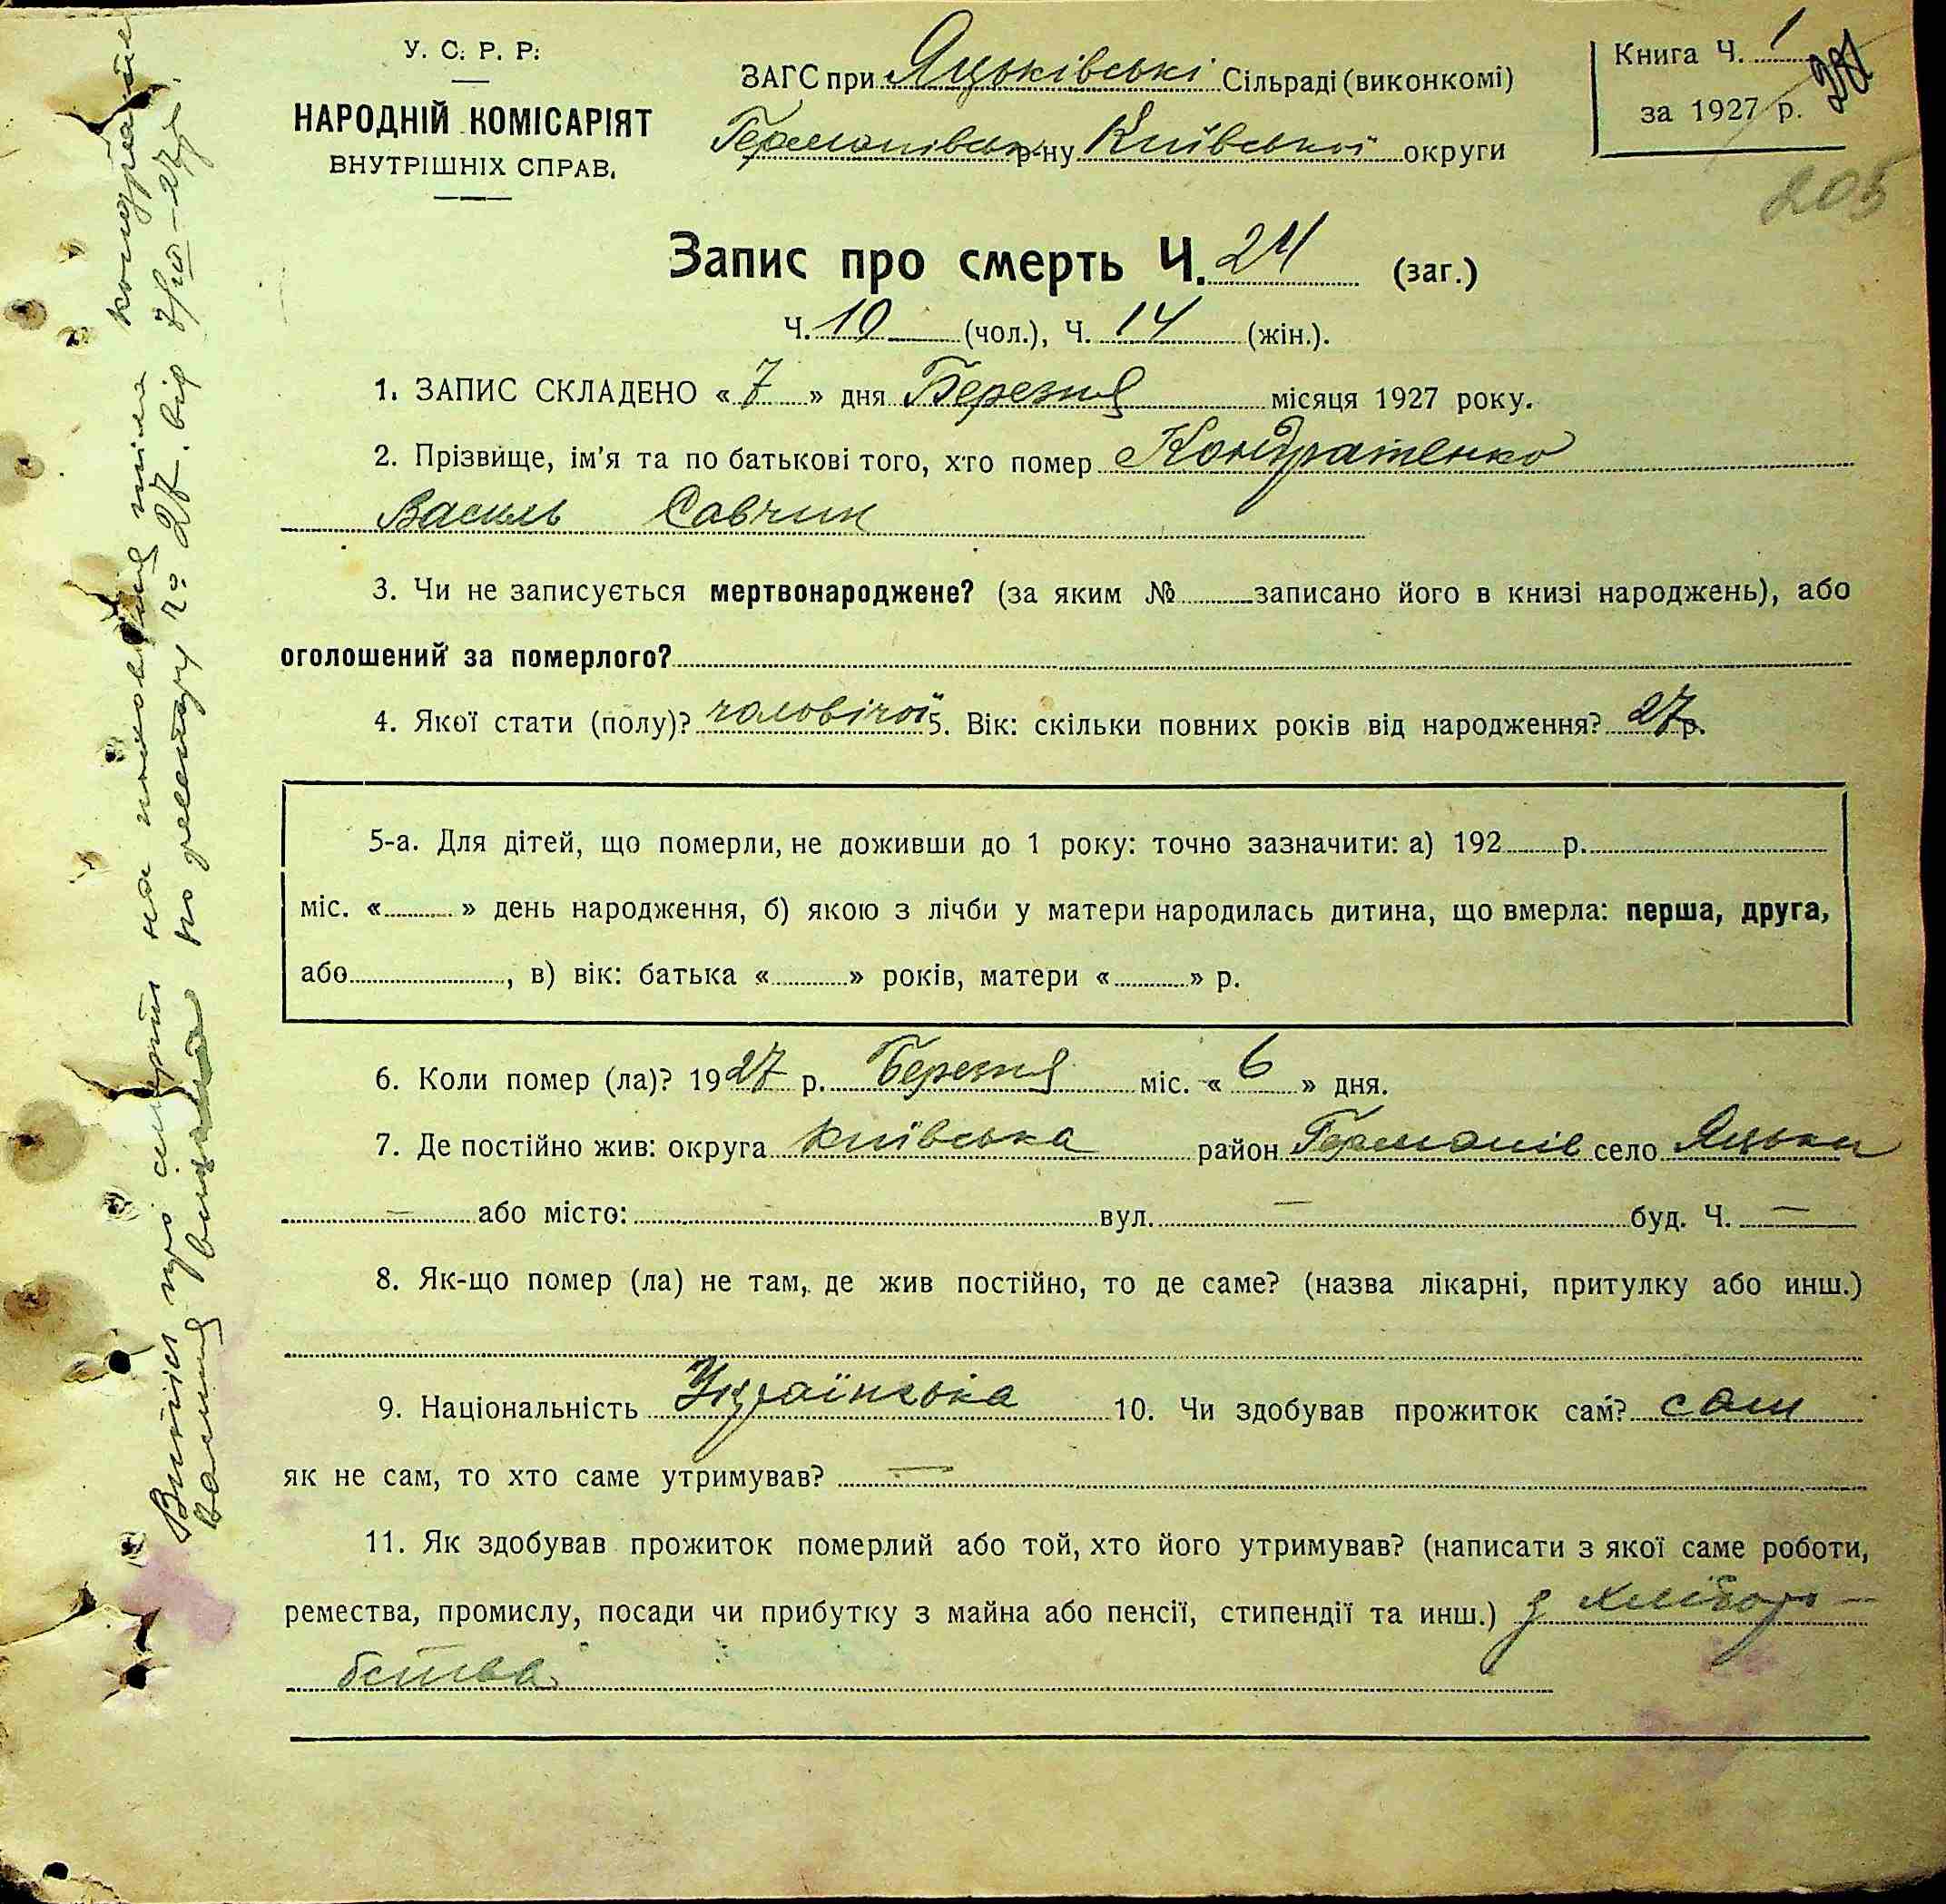 У. С. Р. Р.
НАРОДНІЙ КОМІСАРІЯТ
ВНУТРІШНІХ СПРАВ.
ЗАГС при Яцьківські Сільраді (виконкомі)
Германівськ р-ну Київської округи
Книга Ч. 1
за 1927 р.
205
Запис про смерть Ч. 24 (заг.)
Ч. 10 (чол.), Ч. 14 (жін.).
1. ЗАПИС СКЛАДЕНО « 7 » дня Березня місяця 1927 року.
2. Прізвище, ім'я та по батькові того, хто помер Кондратенко
Василь Савчин
3. Чи не записується мертвонароджене? (за яким № записано його в книзі народжень), або
оголошений за померлого?
4. Якої стати (полу)? чоловічої 5. Вік: скільки повних років від народження? 27 р.
5-а. Для дітей, що померли, не доживши до 1 року: точно зазначити: а) 192 р.
міс. « » день народження, б) якою з лічби у матери народилась дитина, що вмерла: перша, друга,
або , в) вік: батька « » років, матери « » р.
6. Коли помер (ла)? 1927 р. Березня міс. « 6 » дня.
7. Де постійно жив: округа Київська район Германів село Яцьки
— або місто: вул. — буд. Ч. —
8. Як-що помер (ла) не там, де жив постійно, то де саме? (назва лікарні, притулку або инш.)
9. Національність Українська 10. Чи здобував прожиток сам? сам
як не сам, то хто саме утримував? —
11. Як здобував прожиток померлий або той, хто його утримував? (написати з якої саме роботи,
ремества, промислу, посади чи прибутку з майна або пенсії, стипендії та инш.) з хлібор-
бства
Витяг про смерть на
Василя видано по реєстру № 27 від 7/III-27р.